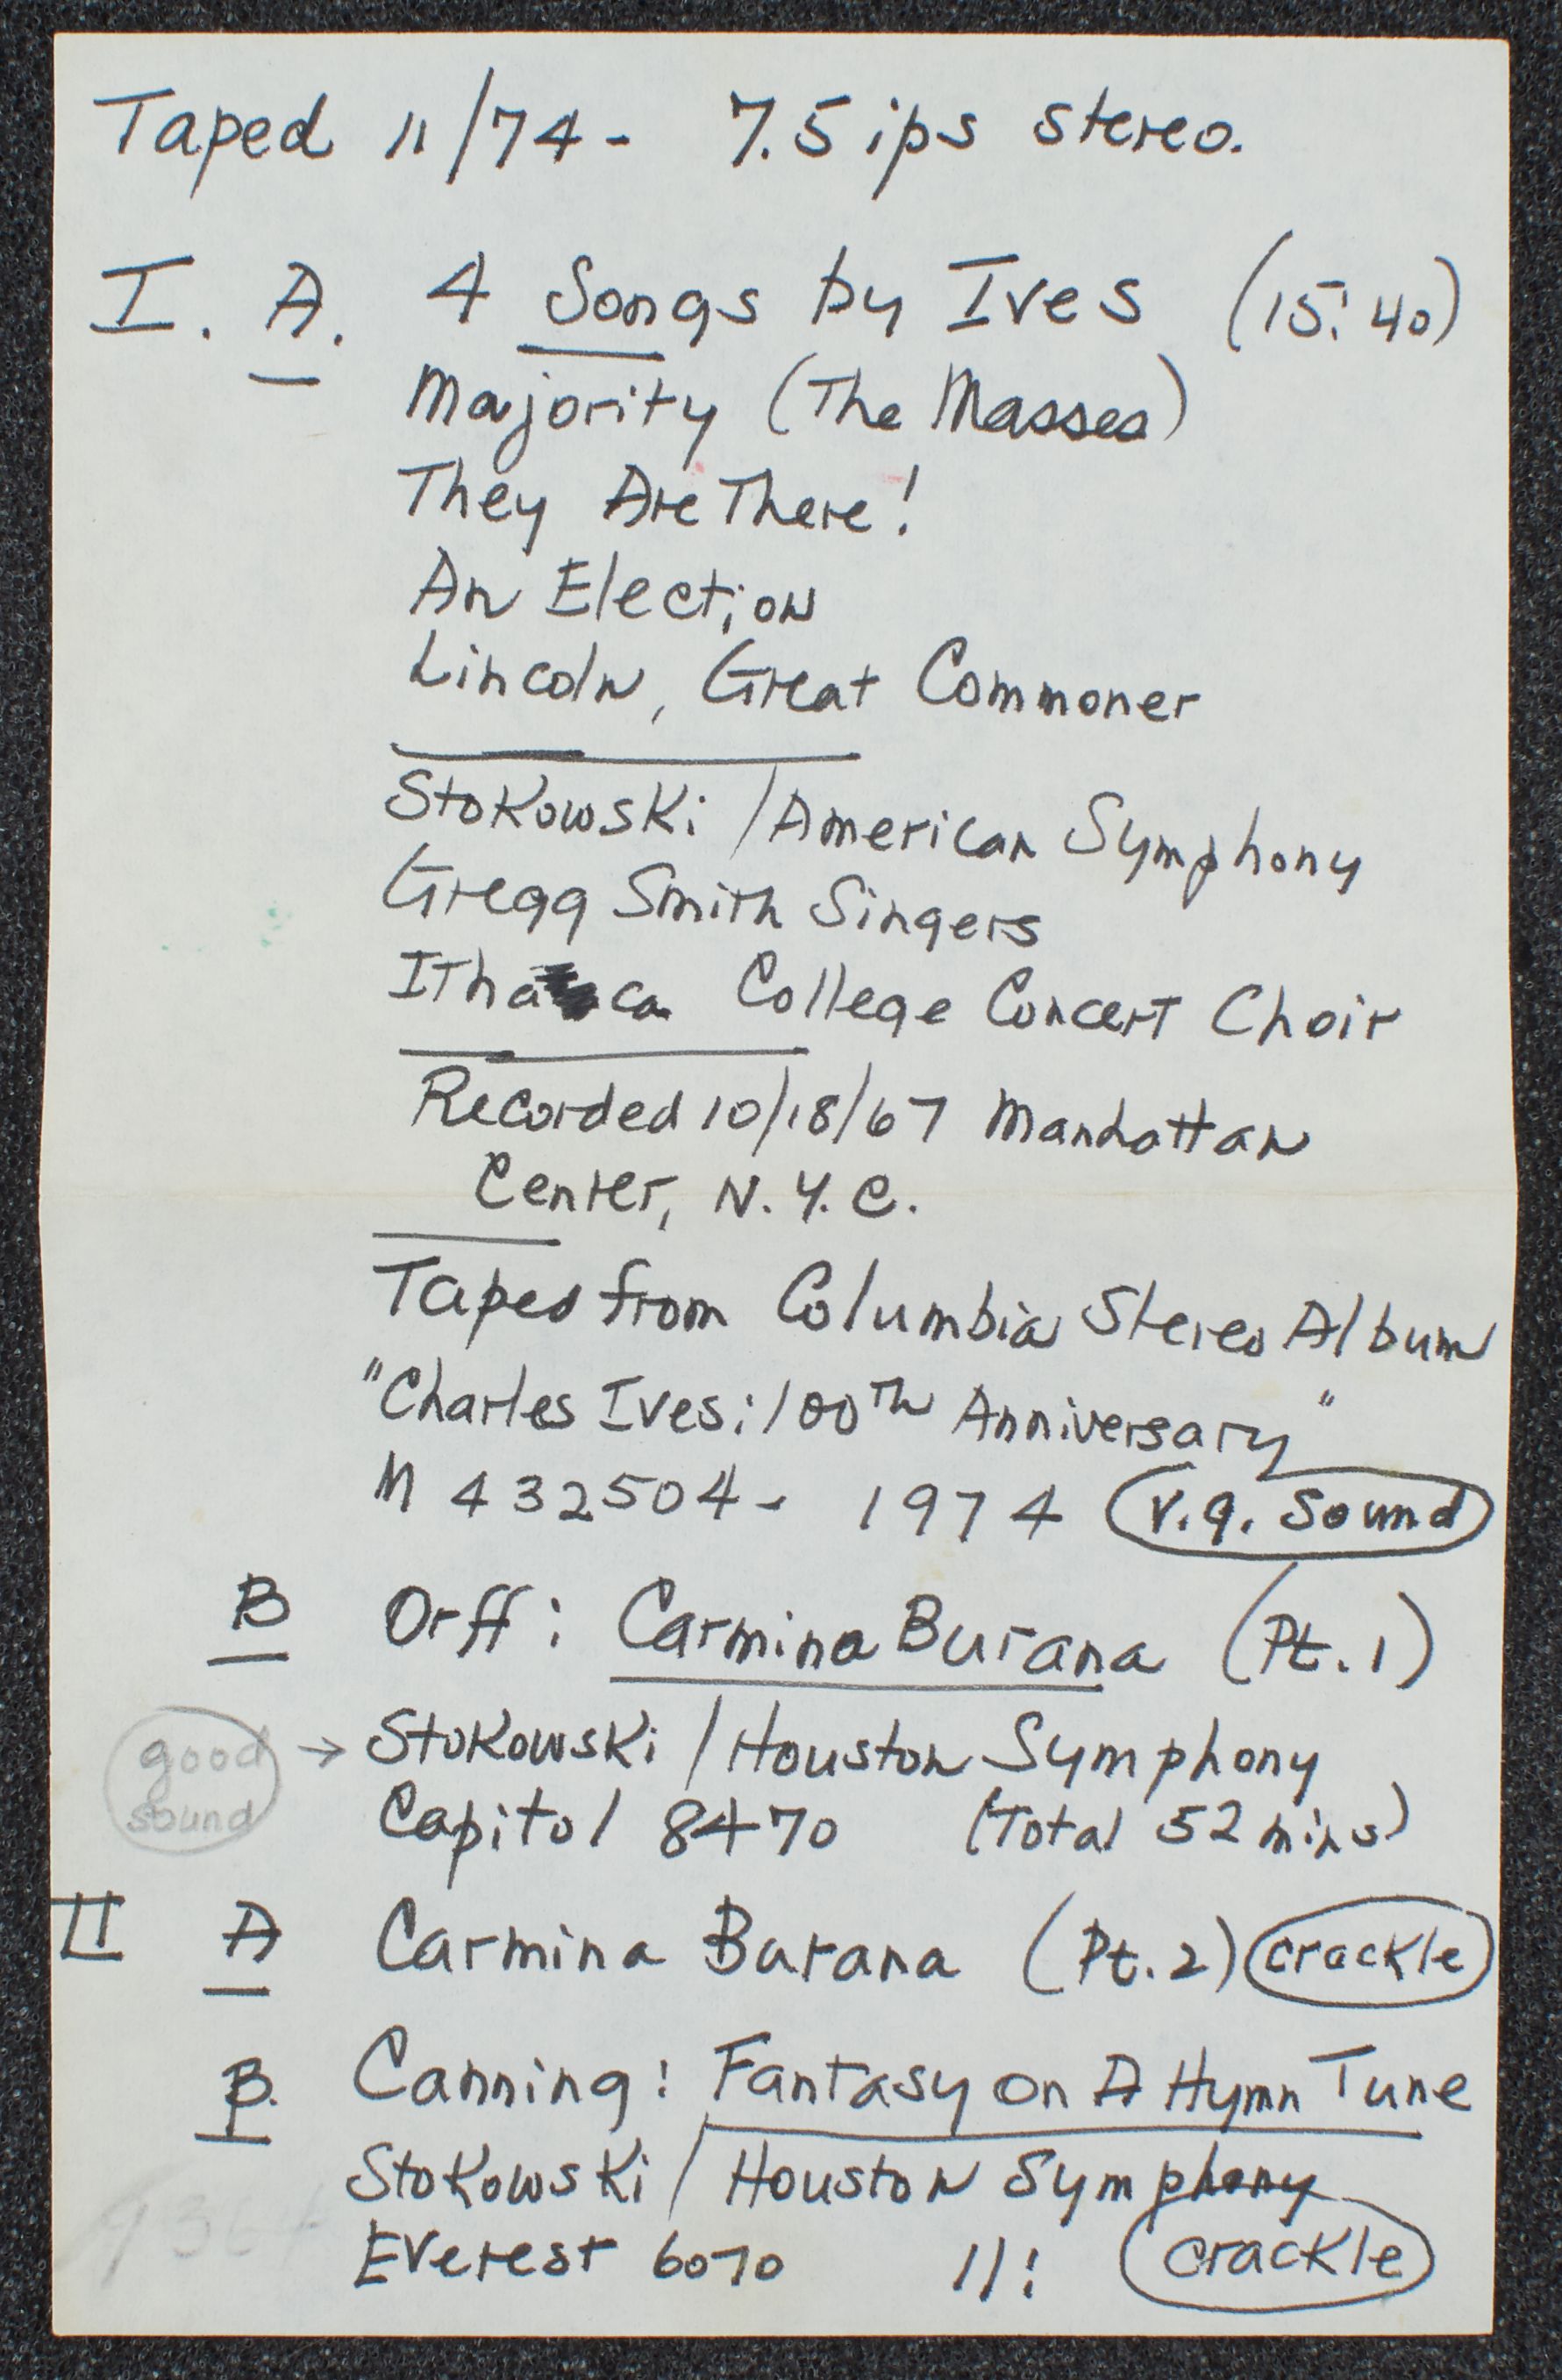 Taped 11/74 - 7.5 ips stereo.
I. A. 4 Songs by Ives (15:40)
Majority (The Masses)
They Are There!
An Election
Lincoln, Great Commoner
Stokowski / American Symphony
Gregg Smith Singers
Ithaca College Concert Choir
Recorded 10/18/67 Manhattan
Center, N.Y.C.
Taped from Columbia Stereo Album
"Charles Ives: 100th Anniversary"
M 432504 - 1974 v.g. sound
B Orff: Carmina Burana (Pt. 1)
good sound → Stokowski / Houston Symphony
Capitol 8470 (Total 52 mins)
II A Carmina Burana (Pt. 2) crackle
B. Canning: Fantasy on A Hymn Tune
Stokowski / Houston Symphony
Everest 6070 11: crackle